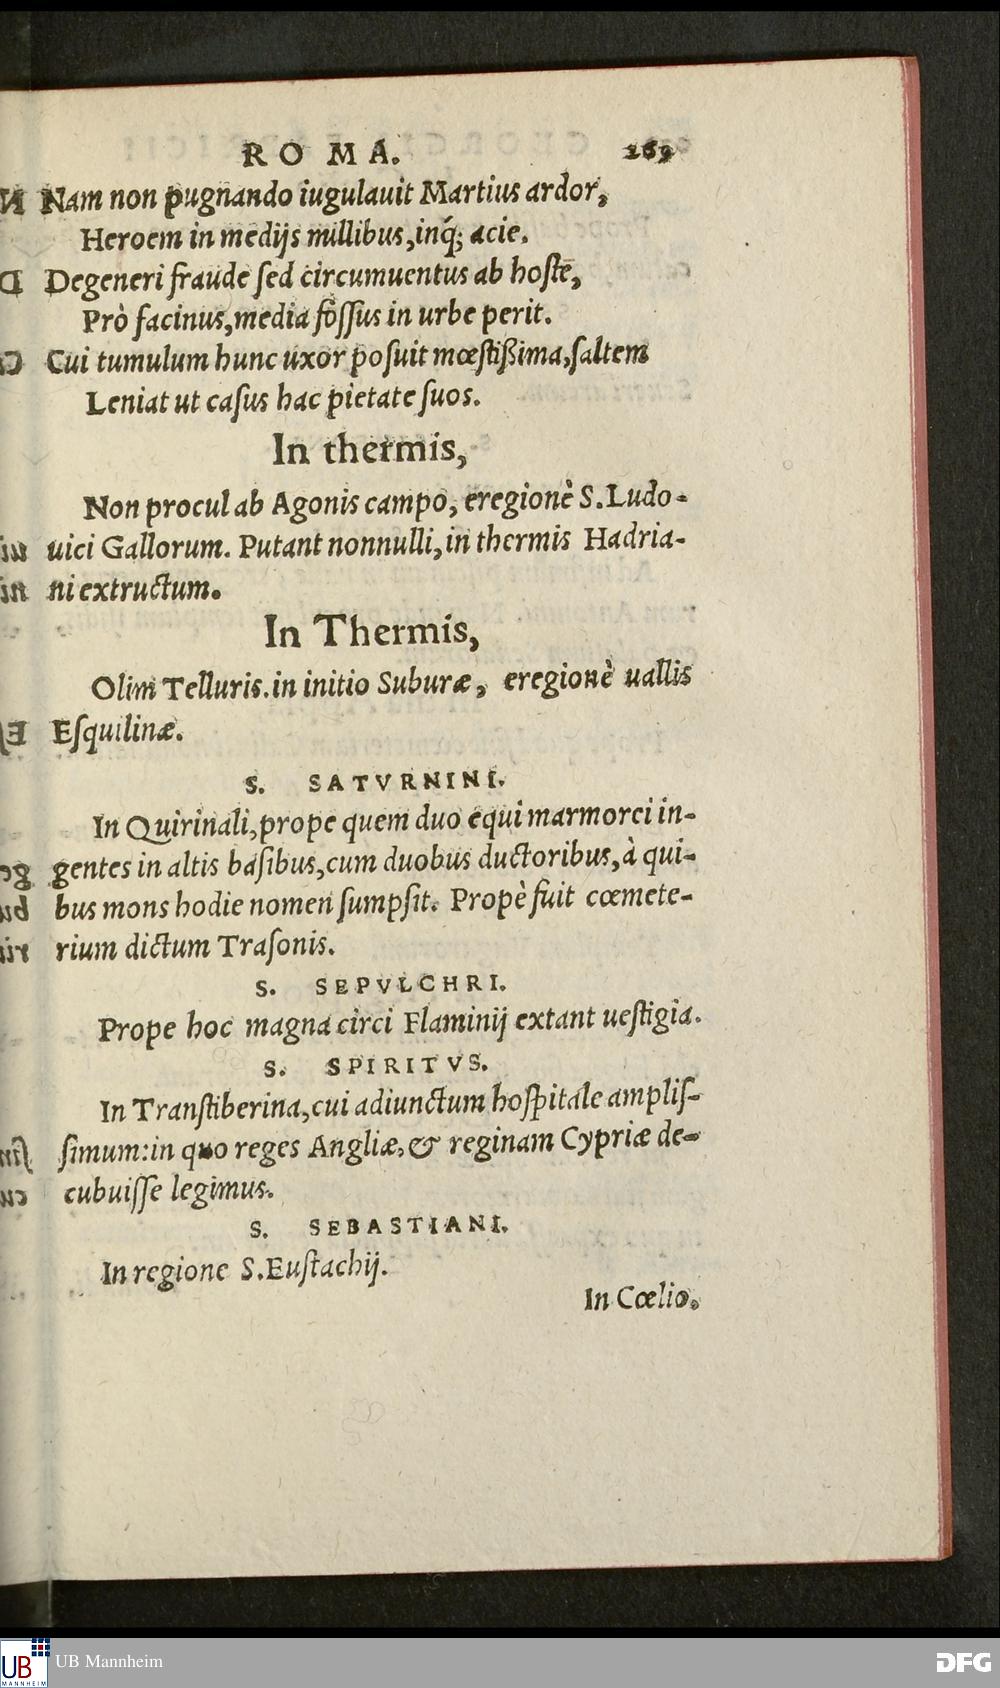 ROMA. 269
Nam non pugnando iugulauit Martius ardor,
Heroem in medijs millibus, inq́; acie.
Degeneri fraude ſed circumuentus ab hoſte,
Prò facinus, media foſſus in urbe perit.
Cui tumulum hunc uxor poſuit mœſtißima, ſaltem
Leniat ut caſus hac pietate ſuos.
In thermis,
Non procul ab Agonis campo, eregionè S. Ludo-
uici Gallorum. Putant nonnulli, in thermis Hadria-
ni extructum.
In Thermis,
Olim Telluris. in initio Suburæ, eregionè uallis
Eſquilinæ.
S. SATVRNINI.
In Quirinali, prope quem duo equi marmorei in-
gentes in altis baſibus, cum duobus ductoribus, à qui-
bus mons hodie nomen ſumpſit. Propè fuit cœmete-
rium dictum Traſonis.
S. SEPVLCHRI.
Prope hoc magna circi Flaminij extant ueſtigia.
S. SPIRITVS.
In Tranſtiberina, cui adiunctum hoſpitale ampliſ-
ſimum: in quo reges Angliæ, & reginam Cypriæ de-
cubuiſſe legimus.
S. SEBASTIANI.
In regione S. Euſtachij.
In Cœlio.
UB Mannheim
UB
MANNHEIM
DFG